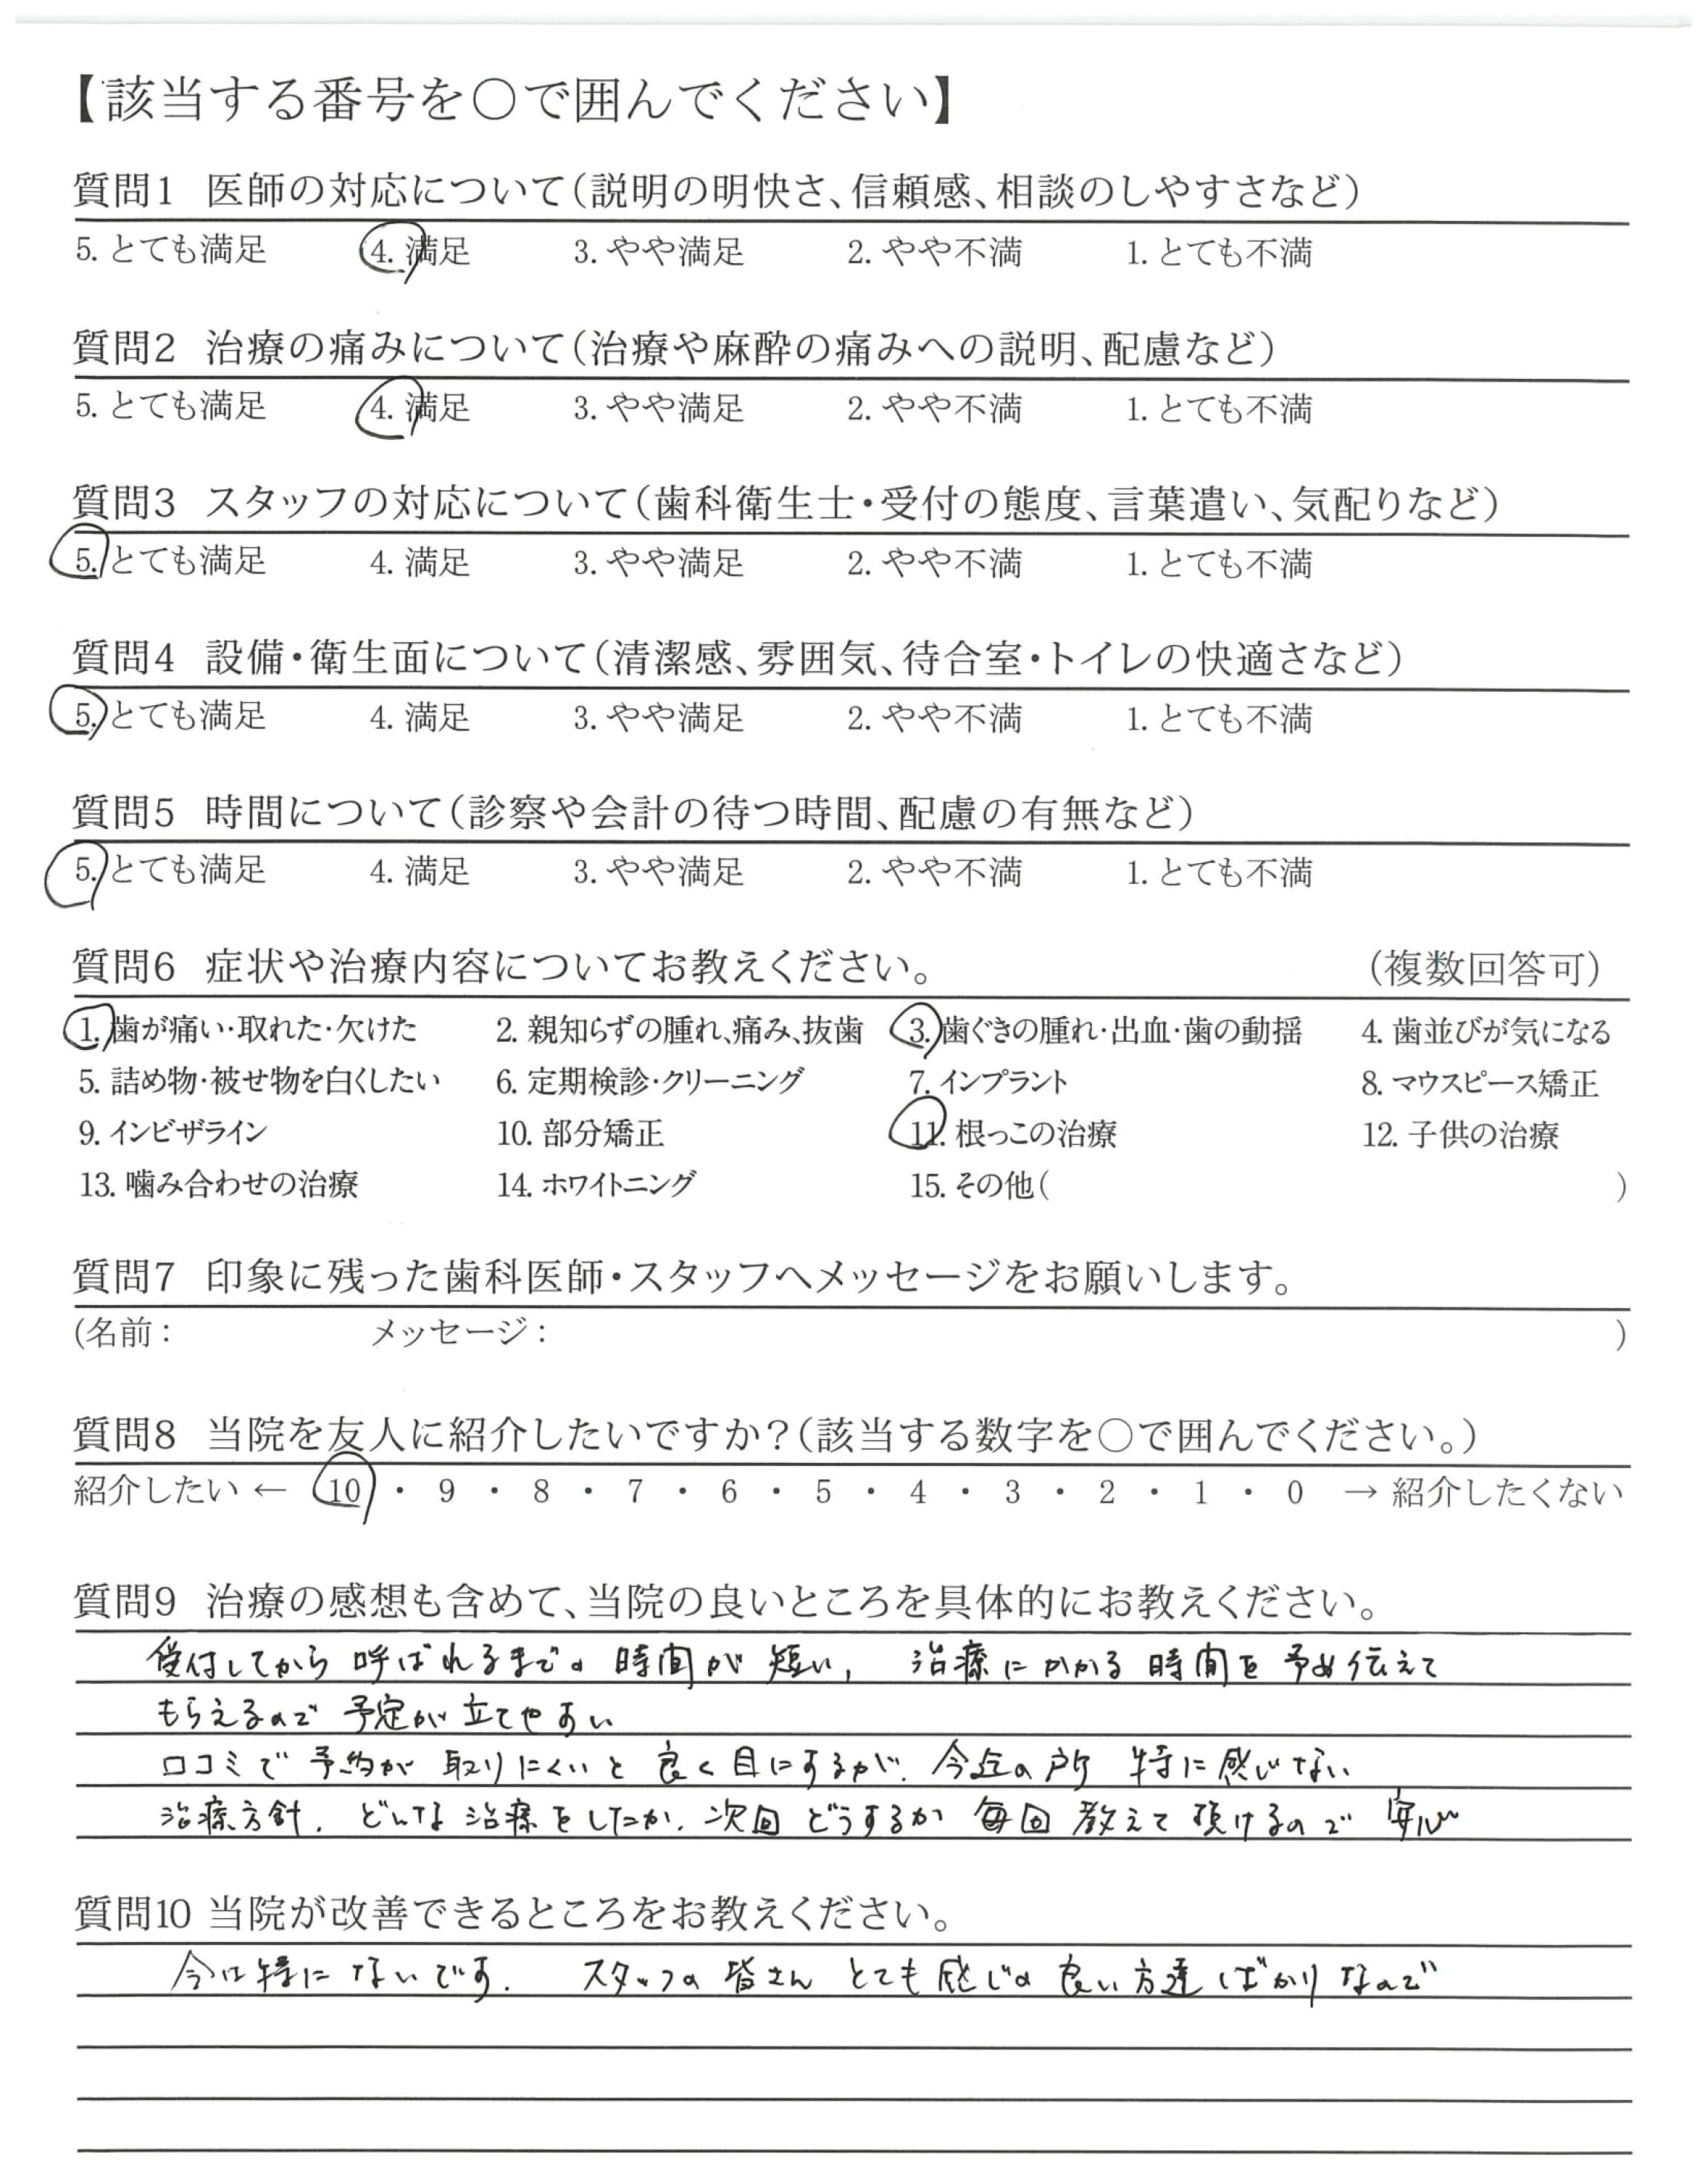 【該当する番号を〇で囲んでください】
質問1 医師の対応について(説明の明快さ、信頼感、相談のしやすさなど)
5. とても満足 4. 満足 3. やや満足 2. やや不満 1. とても不満
質問2 治療の痛みについて(治療や麻酔の痛みへの説明、配慮など)
5. とても満足 4. 満足 3. やや満足 2. やや不満 1. とても不満
質問3 スタッフの対応について(歯科衛生士・受付の態度、言葉遣い、気配りなど)
5. とても満足 4. 満足 3. やや満足 2. やや不満 1. とても不満
質問4 設備・衛生面について(清潔感、雰囲気、待合室・トイレの快適さなど)
5. とても満足 4. 満足 3. やや満足 2. やや不満 1. とても不満
質問5 時間について(診察や会計の待つ時間、配慮の有無など)
5. とても満足 4. 満足 3. やや満足 2. やや不満 1. とても不満
質問6 症状や治療内容についてお教えください。 (複数回答可)
1. 歯が痛い・取れた・欠けた 2. 親知らずの腫れ、痛み、抜歯 3. 歯ぐきの腫れ・出血・歯の動揺 4. 歯並びが気になる
5. 詰め物・被せ物を白くしたい 6. 定期検診・クリーニング 7. インプラント 8. マウスピース矯正
9. インビザライン 10. 部分矯正 11. 根っこの治療 12. 子供の治療
13. 噛み合わせの治療 14. ホワイトニング 15. その他( )
質問7 印象に残った歯科医師・スタッフへメッセージをお願いします。
(名前: メッセージ: )
質問8 当院を友人に紹介したいですか?(該当する数字を〇で囲んでください。)
紹介したい ← 10 ・ 9 ・ 8 ・ 7 ・ 6 ・ 5 ・ 4 ・ 3 ・ 2 ・ 1 ・ 0 → 紹介したくない
質問9 治療の感想も含めて、当院の良いところを具体的にお教えください。
受付してから 呼ばれるまでの 時間が 短い, 治療にかかる 時間を 予め伝えて
もらえるので 予定が 立てやすい
口コミで 予約が 取りにくいと 良く目にするが、今迄の所 特に感じない
治療方針、どんな治療をしたか、次回どうするか 毎回 教えて頂けるので 安心
質問10 当院が改善できるところをお教えください。
今は特に ないです. スタッフの 皆さん とても 感じの 良い方達 ばかり なので